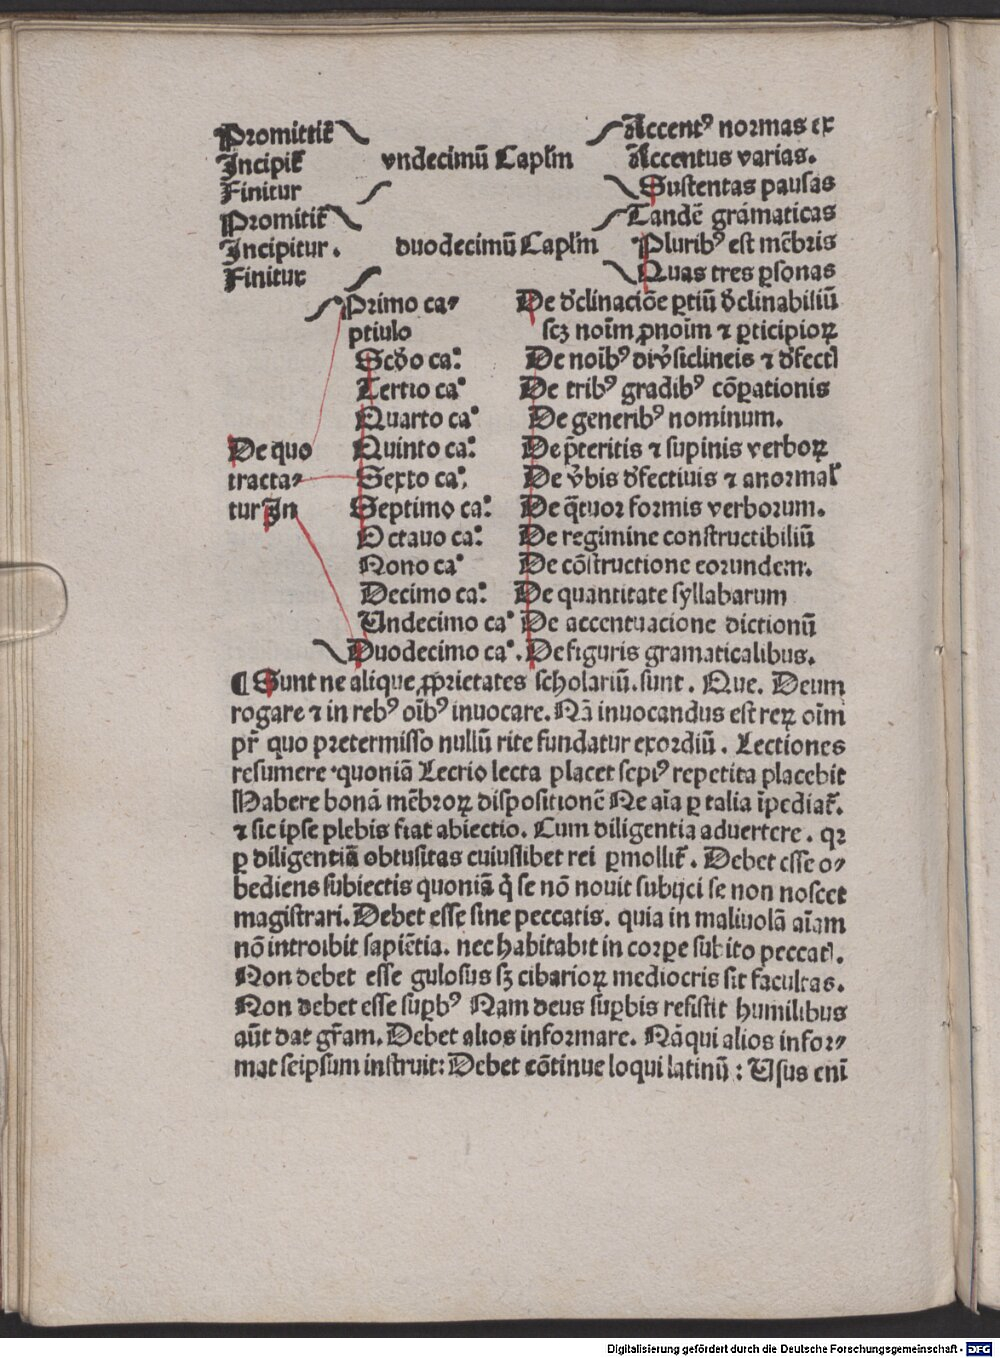 Promittit̃ Accent⁹ normas ex
Incipit̃ vndecimū Capl̃m Accentus varias.
Finitur Sustentas pausas
Promitit̃ Tandē grāmaticas
Incipitur. duodecimū Capl̃m Plurib⁹ est mēbris
Finitur Quas tres ꝑsonas
Primo ca⸗ De d̓clinaciōe ꝑtiū d̓clinabiliū
ptiulo scꝫ noīm ꝓnoīm ⁊ ꝑticipioꝝ
Scd̓o ca: De noīb⁹ div̓siclineis ⁊ d̓fecti
Tertio ca° De trib⁹ gradib⁹ cōꝑationis
Quarto ca° De generib⁹ nominum.
De quo Quinto ca: De p̄teritis ⁊ supinis verboꝝ
tracta⸗ Sexto ca: De v̓bis d̓fectiuis ⁊ anormal̓
tur In Septimo ca: De q̄tuor formis verborum.
Octauo ca: De regimine constructibiliū
Nono ca° De cōstructione eorundem.
Decimo ca: De quantitate syllabarum
Undecimo ca° De accentuacione dictionū
Duodecimo ca°. De figuris gramaticalibus.
¶ Sunt ne alique ꝓprietates scholariū. sunt. Que. Deum
rogare ⁊ in reb⁹ oīb⁹ inuocare. Nā inuocandus est reꝝ oīm
pr̄ quo pretermisso nullū rite fundatur exordiū. Lectiones
resumere quoniā Lectio lecta placet sepi⁹ repetita placebit
Habere bonā mēbroꝝ dispositionē Ne aīa ꝑ talia īpediat̃.
⁊ sic ipse plebis fiat abiectio. Cum diligentia aduertere. qꝛ
ꝑ diligentiā obtusitas cuiuslibet rei ꝑmollit̃. Debet esse o⸗
bediens subiectis quoniā q̇ se nō nouit subijci se non noscet
magistrari. Debet esse sine peccatis. quia in maliuolā aīam
nō introibit sapiētia. nec habitabit in corꝑe subito peccati.
Non debet esse gulosus sꝫ cibarioꝝ mediocris sit facultas.
Non debet esse suꝑb⁹ Nam deus suꝑbis resistit humilibus
aūt dat gr̄am. Debet alios informare. Nā qui alios infor⸗
mat seipsum instruit: Debet cōtinue loqui latinū: Usus enī
Digitalisierung gefördert durch die Deutsche Forschungsgemeinschaft - DFG